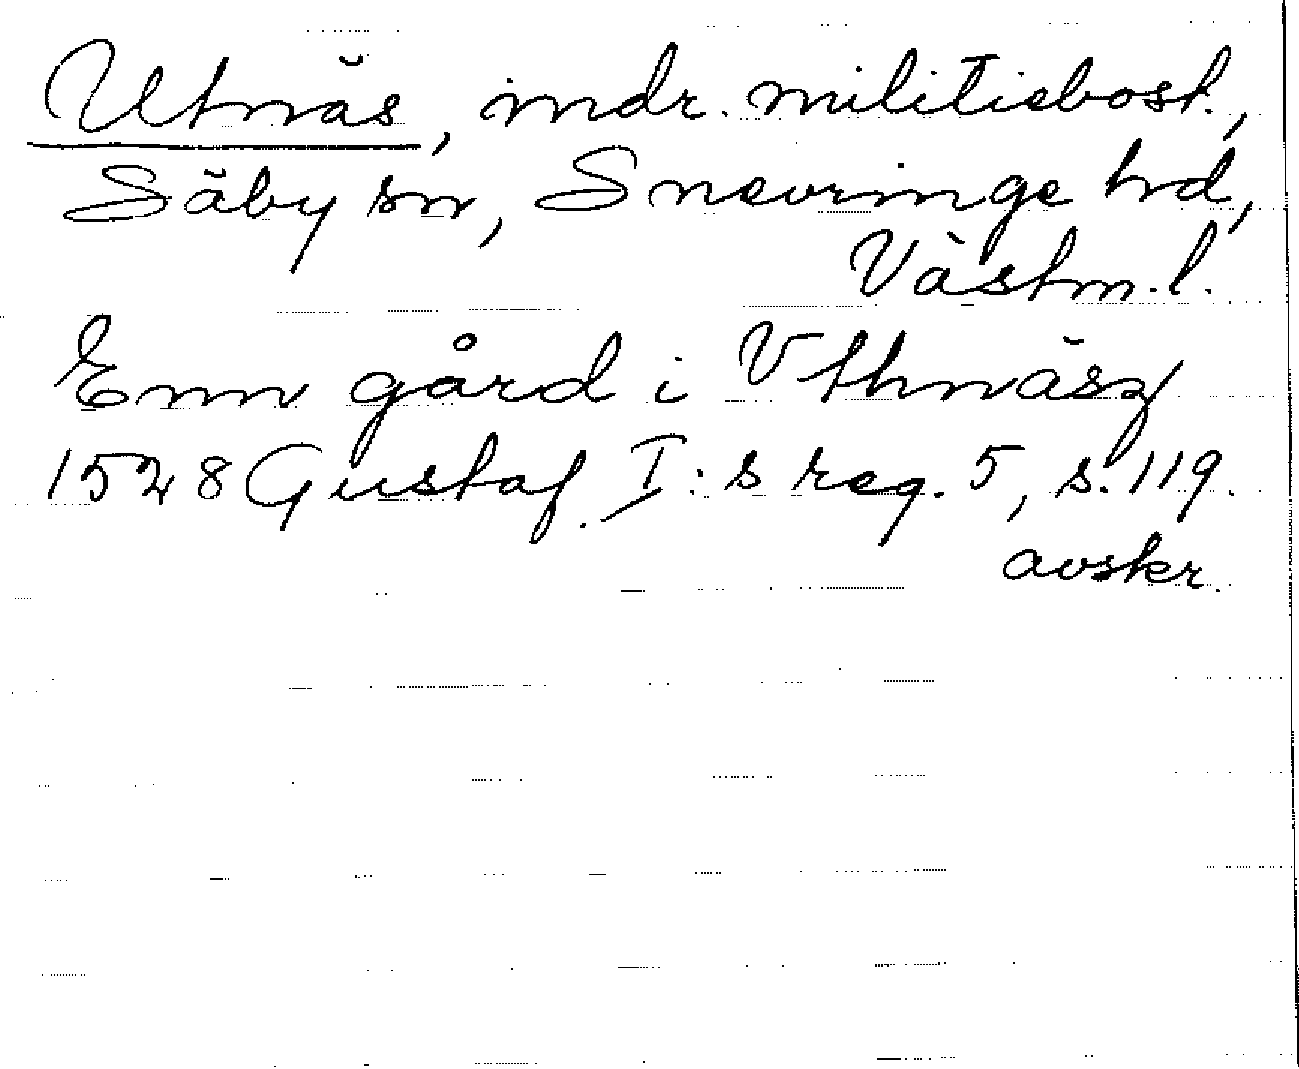 Utnäs, indr. militiebost.,
Säby sn, Snevringe hd,
Västm. l.
Enn gård i Vthnäsz
1528 Gustaf I:s reg. 5, s. 119.
avskr.